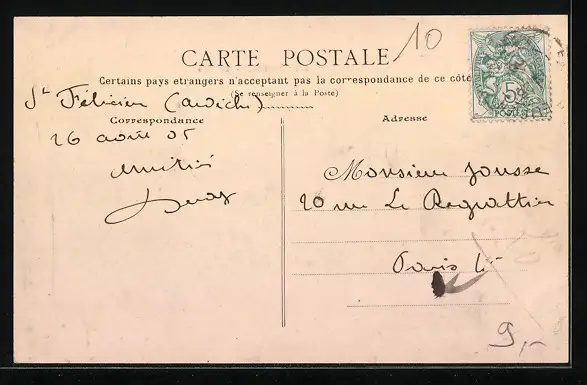 10
CARTE POSTALE
Certains pays etrangers n'acceptant pas la correspondance de ce côté
(Se renseigner à la Poste)
St Félicien (Ardèche)
Correspondance
Adresse
5c
POSTES
26 août 05
amitiés
Monsieur Jousse
20 rue Le Regrattier
Paris
9,-